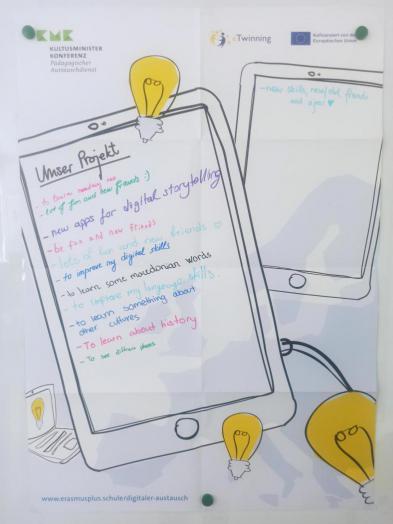 KMK
KULTUSMINISTER
KONFERENZ
Pädagogischer
Austauschdienst
eTwinning
Kofinanziert von der
Europäischen Union
- new skills, new/old friends
and apes ♥
Unser Projekt
- to learn
- lot of fun and new friends :)
- new apps for digital storytelling
- be fun and new friends
- lots of fun and new friends
- to improve my digital skills
- to learn some macedonian words
- to improve my language skills.
- to learn something about
other cultures
- To learn about history
- To see other
www.erasmusplus.schule/digitaler-austausch